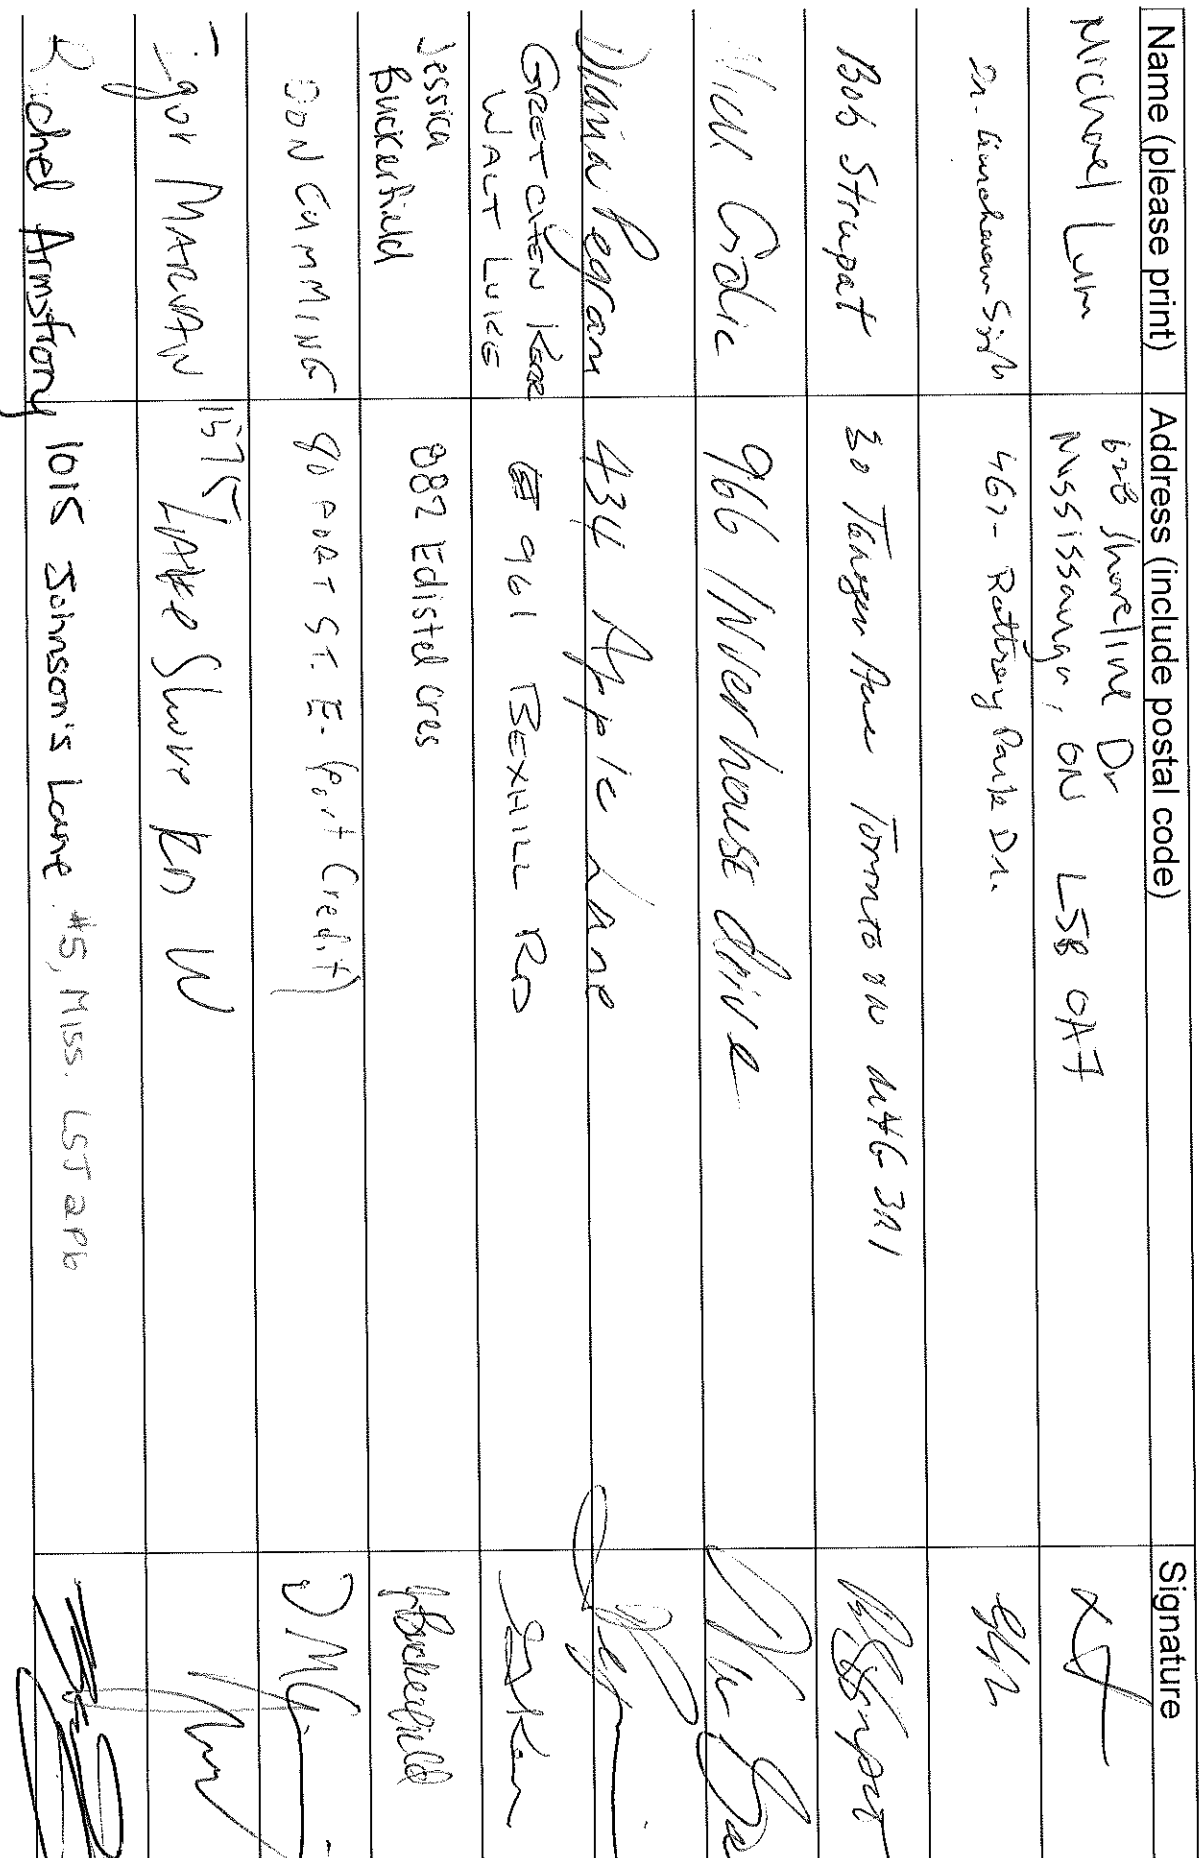 Name (please print) Address (include postal code) Signature
Michael Lum 628 Shoreline Dr
Mississauga, ON L5B 0A7
467- Rattray Park Dr.
Bob Strupat 30 Ave Toronto ON 3A1
966 Inverhouse drive
Diana Pegram 434 Apple Lane
GRETCHEN KERR 961 BEXHILL RD
WALT LUKE
Jessica 882 Edistel Cres
Buckerfield
DON CUMMING 90 PORT ST. E. (Port Credit)
Igor MARVAN 1575 LAKE Shore RD W
Rachel Armstrong 1015 Johnson's Lane #5, Miss. L5J 2P6